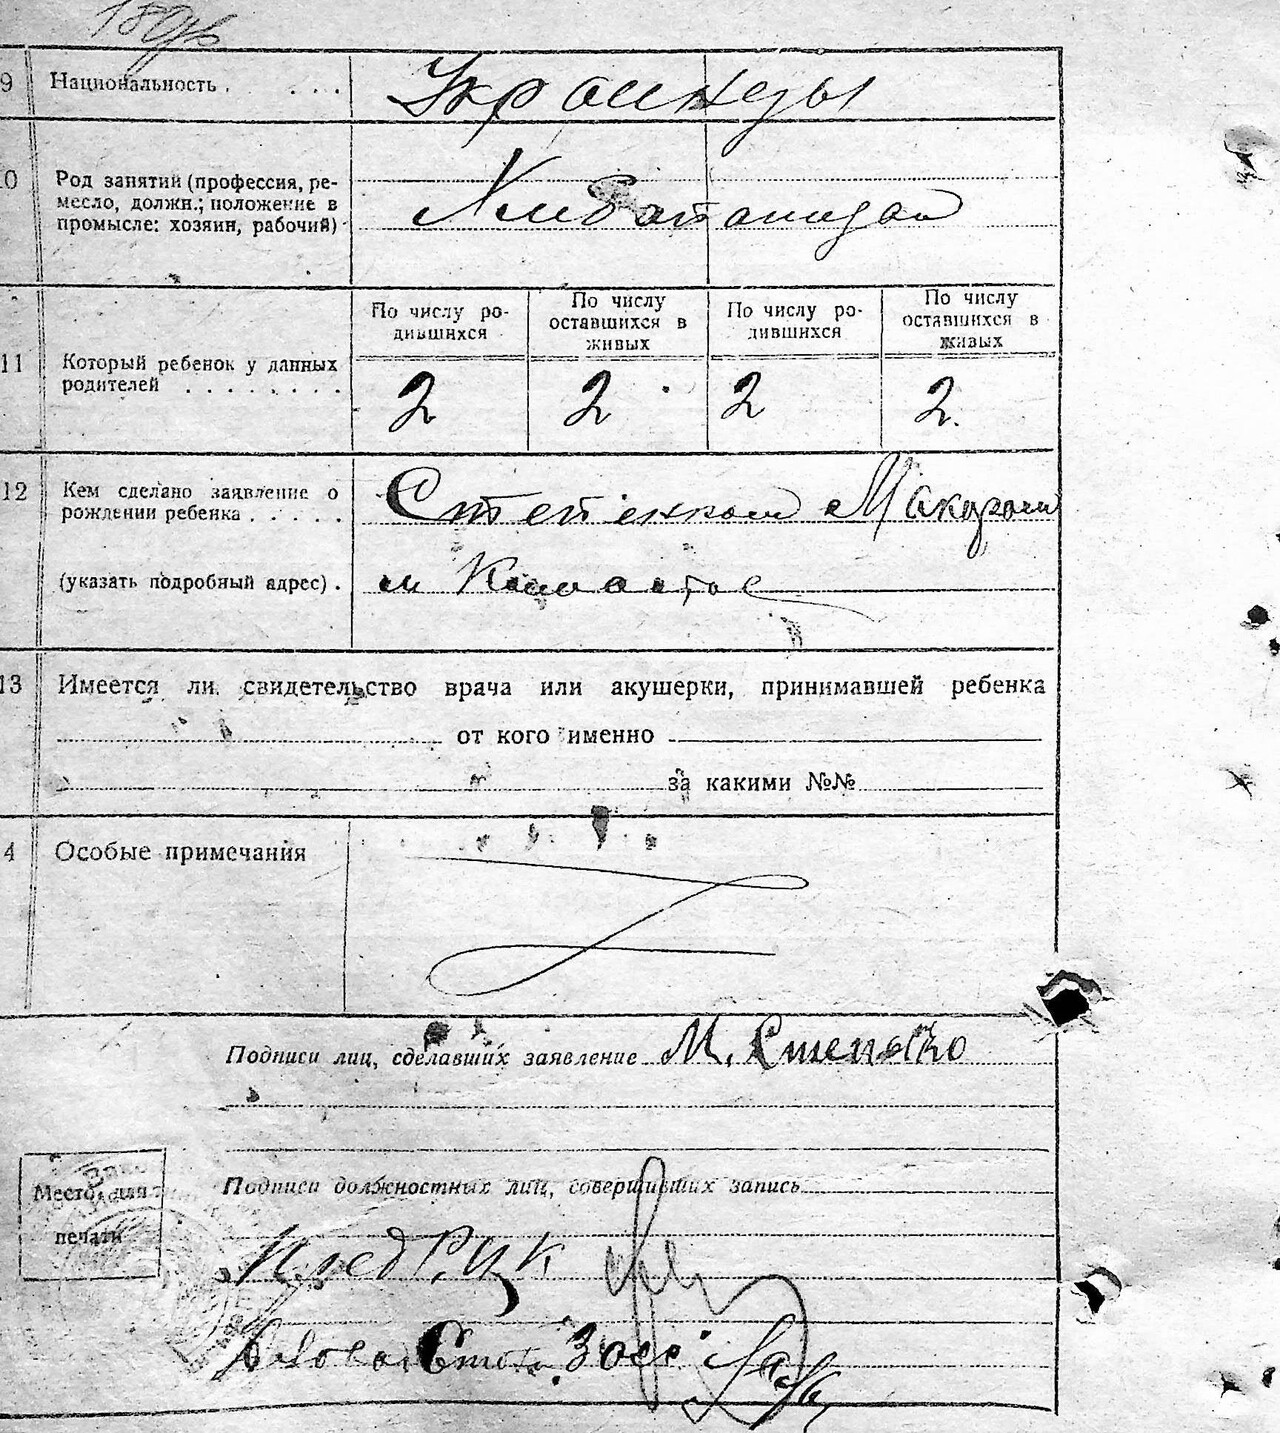 9 Национальность . . . . . Украинцы
10 Род занятий (профессия, ре-
месло, должн.; положение в
промысле: хозяин, рабочий)
По числу ро-
дившихся
По числу
оставшихся в
живых
По числу ро-
дившихся
По числу
оставшихся в
живых
11 Который ребенок у данных
родителей . . . . . . . .
2 2 2 2.
12 Кем сделано заявление о
рождении ребенка . . . . .
Макаром
(указать подробный адрес) .
13 Имеется ли свидетельство врача или акушерки, принимавшей ребенка
от кого именно
за какими №№
4 Особые примечания
Подписи лиц, сделавших заявление М. Степенко
Подписи должностных лиц, совершивших запись
Место для
печати